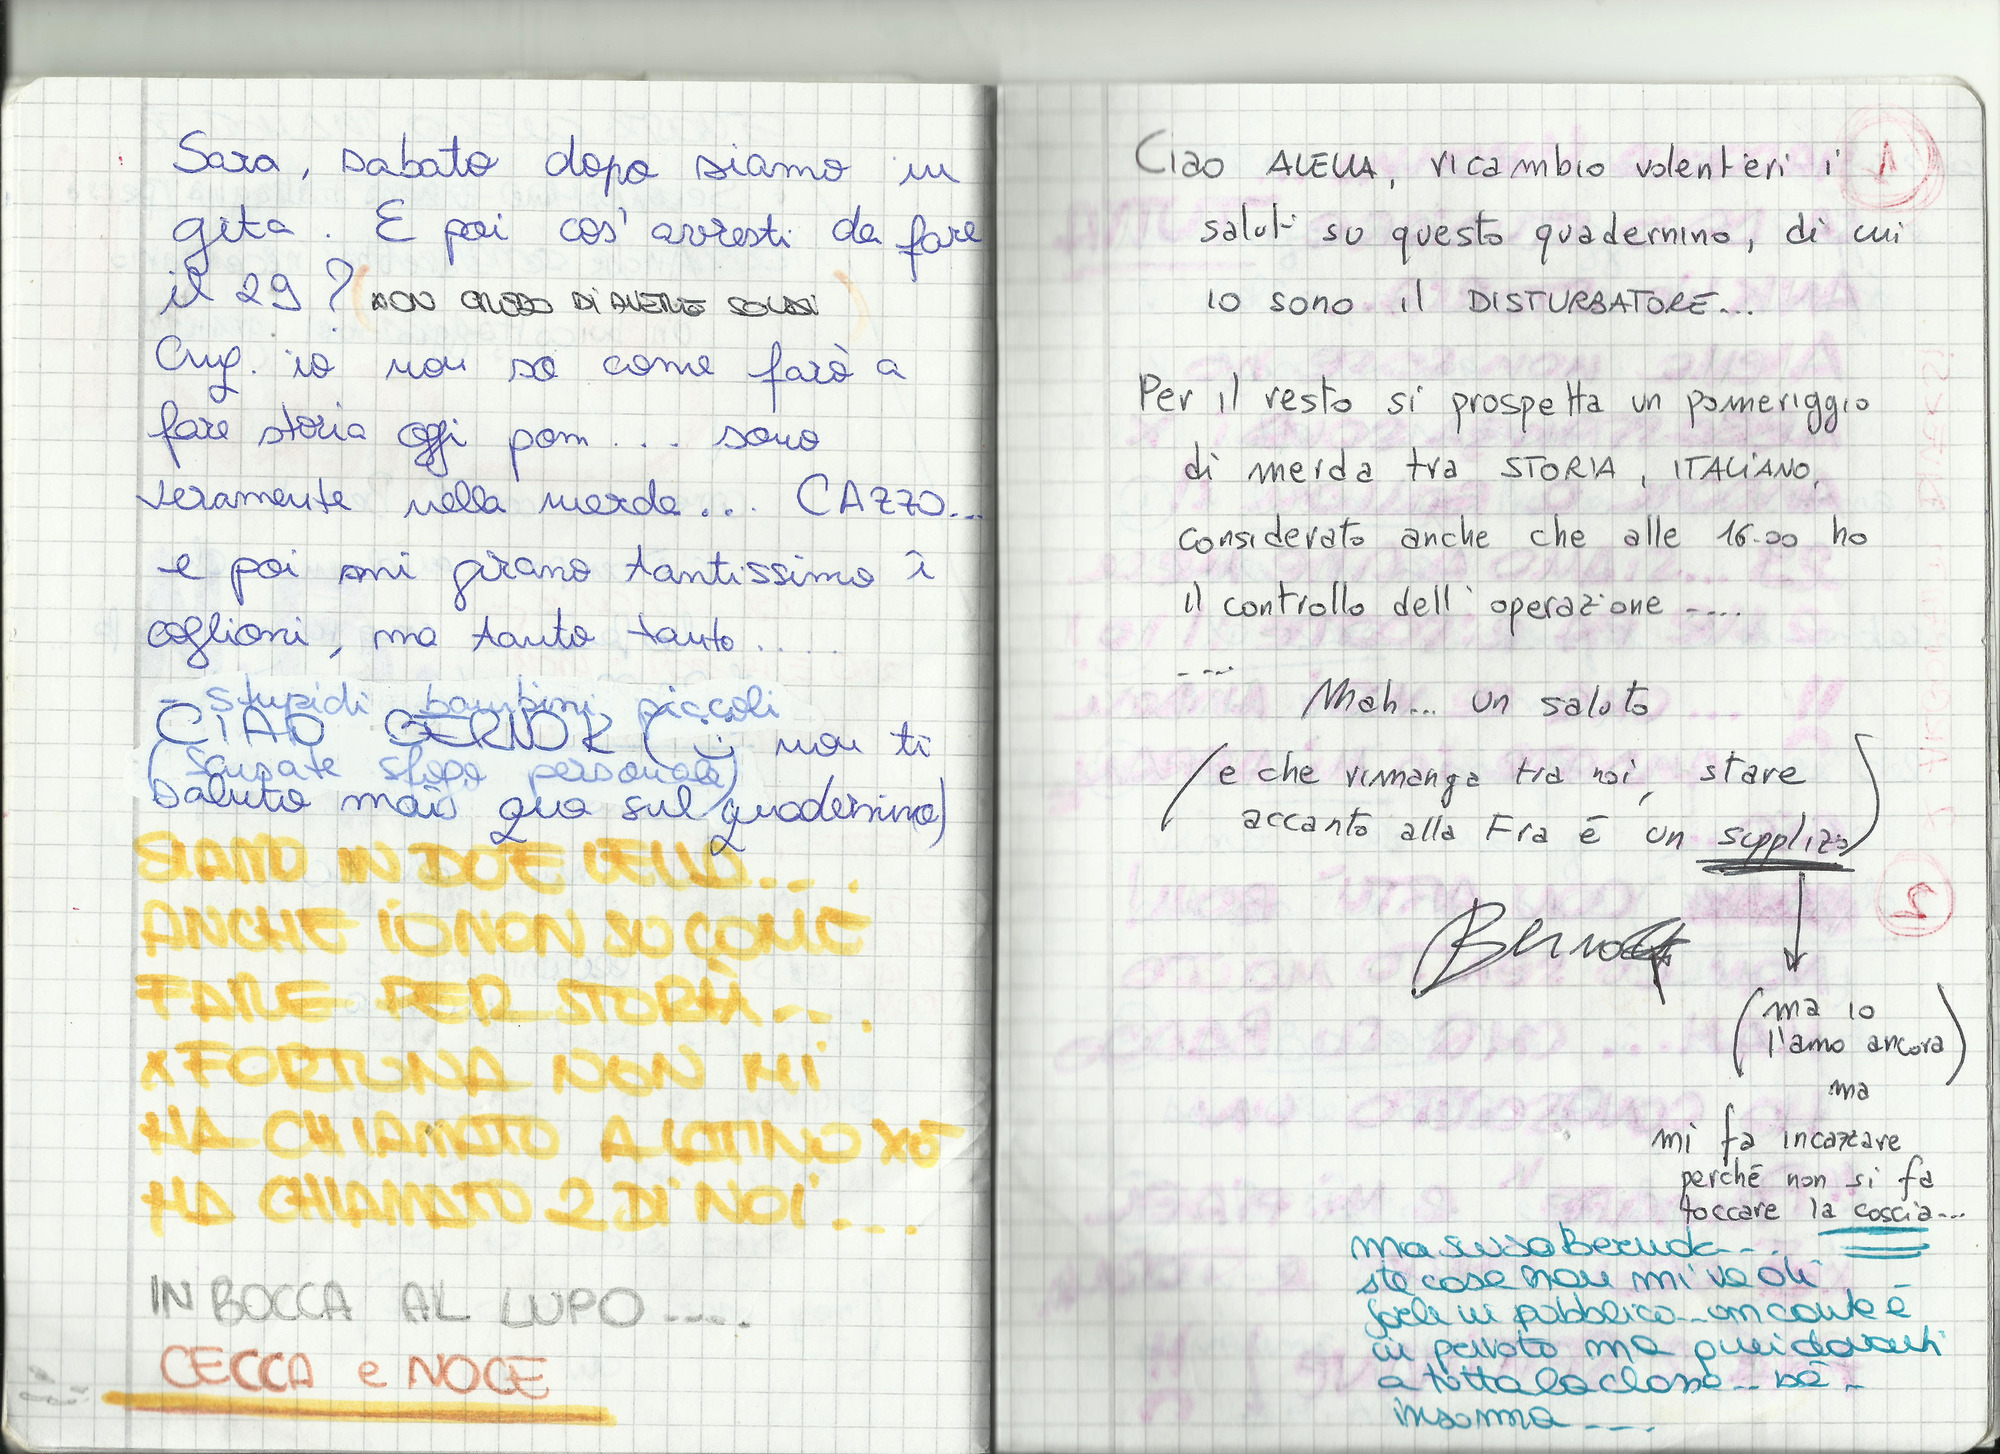 Sara, sabato dopo siamo in
gita. E poi cos'avresti da fare
il 29? (NON CREDO DI AVERE SOLDI)
Cug. io non so come farò a
fare storia oggi pom.... sono
veramente nella merda... CAZZO...
e poi mi girano tantissimo i
coglioni, ma tanto tanto.....
- stupidi bambini piccoli
CIAO BERNOK (: non ti
(scusate sfogo personale)
saluto mai qua sul quadernino)
SIAMO IN DUE BELLO....
ANCHE IO NON SO COME
FARE PER STORIA....
XFORTUNA NON MI
HA CHIAMATO A LATINO XÒ
HA CHIAMATO 2 DI NOI...
IN BOCCA AL LUPO....
CECCA e NOCE
1
Ciao ALELLA, ricambio volentieri i
saluti su questo quadernino, di cui
io sono il DISTURBATORE...
Per il resto si prospetta un pomeriggio
di merda tra STORIA, ITALIANO,
considerato anche che alle 16.00 ho
il controllo dell'operazione ....
....
Mah... un saluto
(e che rimanga tra noi, stare
accanto alla Fra è un supplizio)
2
(ma io
l'amo ancora)
ma
mi fa incazzare
perché non si fa
toccare la coscia...
ma scusa Bernok...
ste cose non mi va di
farle in pubblico... un conto è
in privato ma qui davanti
a tutta la classe... bè..
insomma....